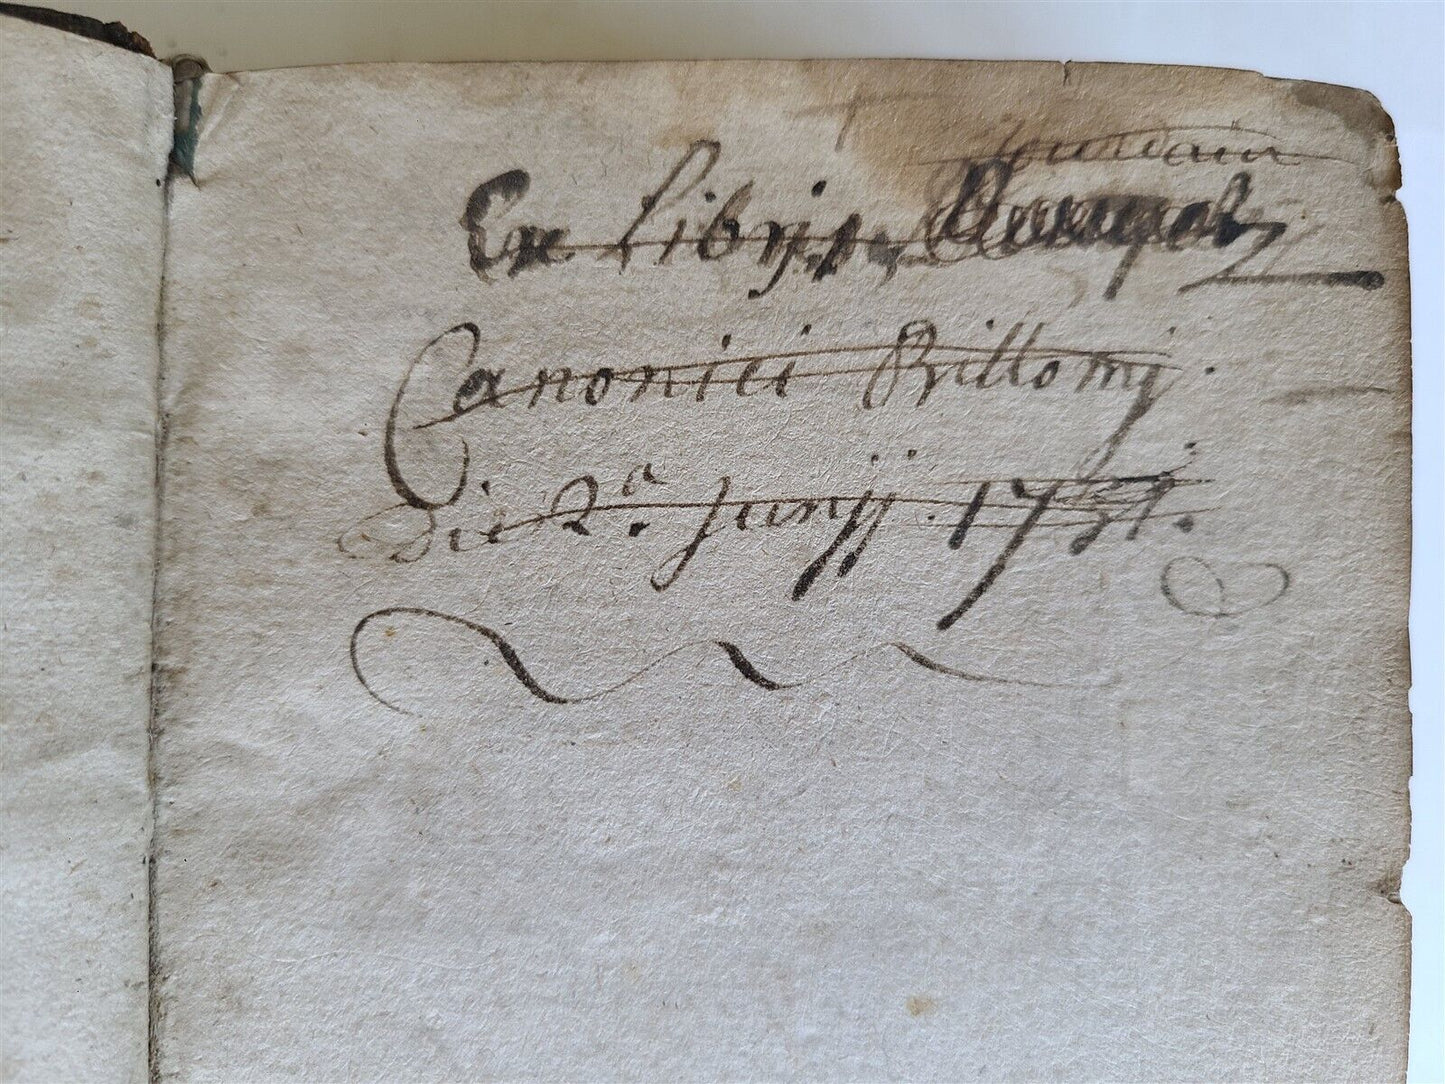 Jourdain
Ex Libris
Canonici Billomj.
Die 2.ª Junij. 1751.